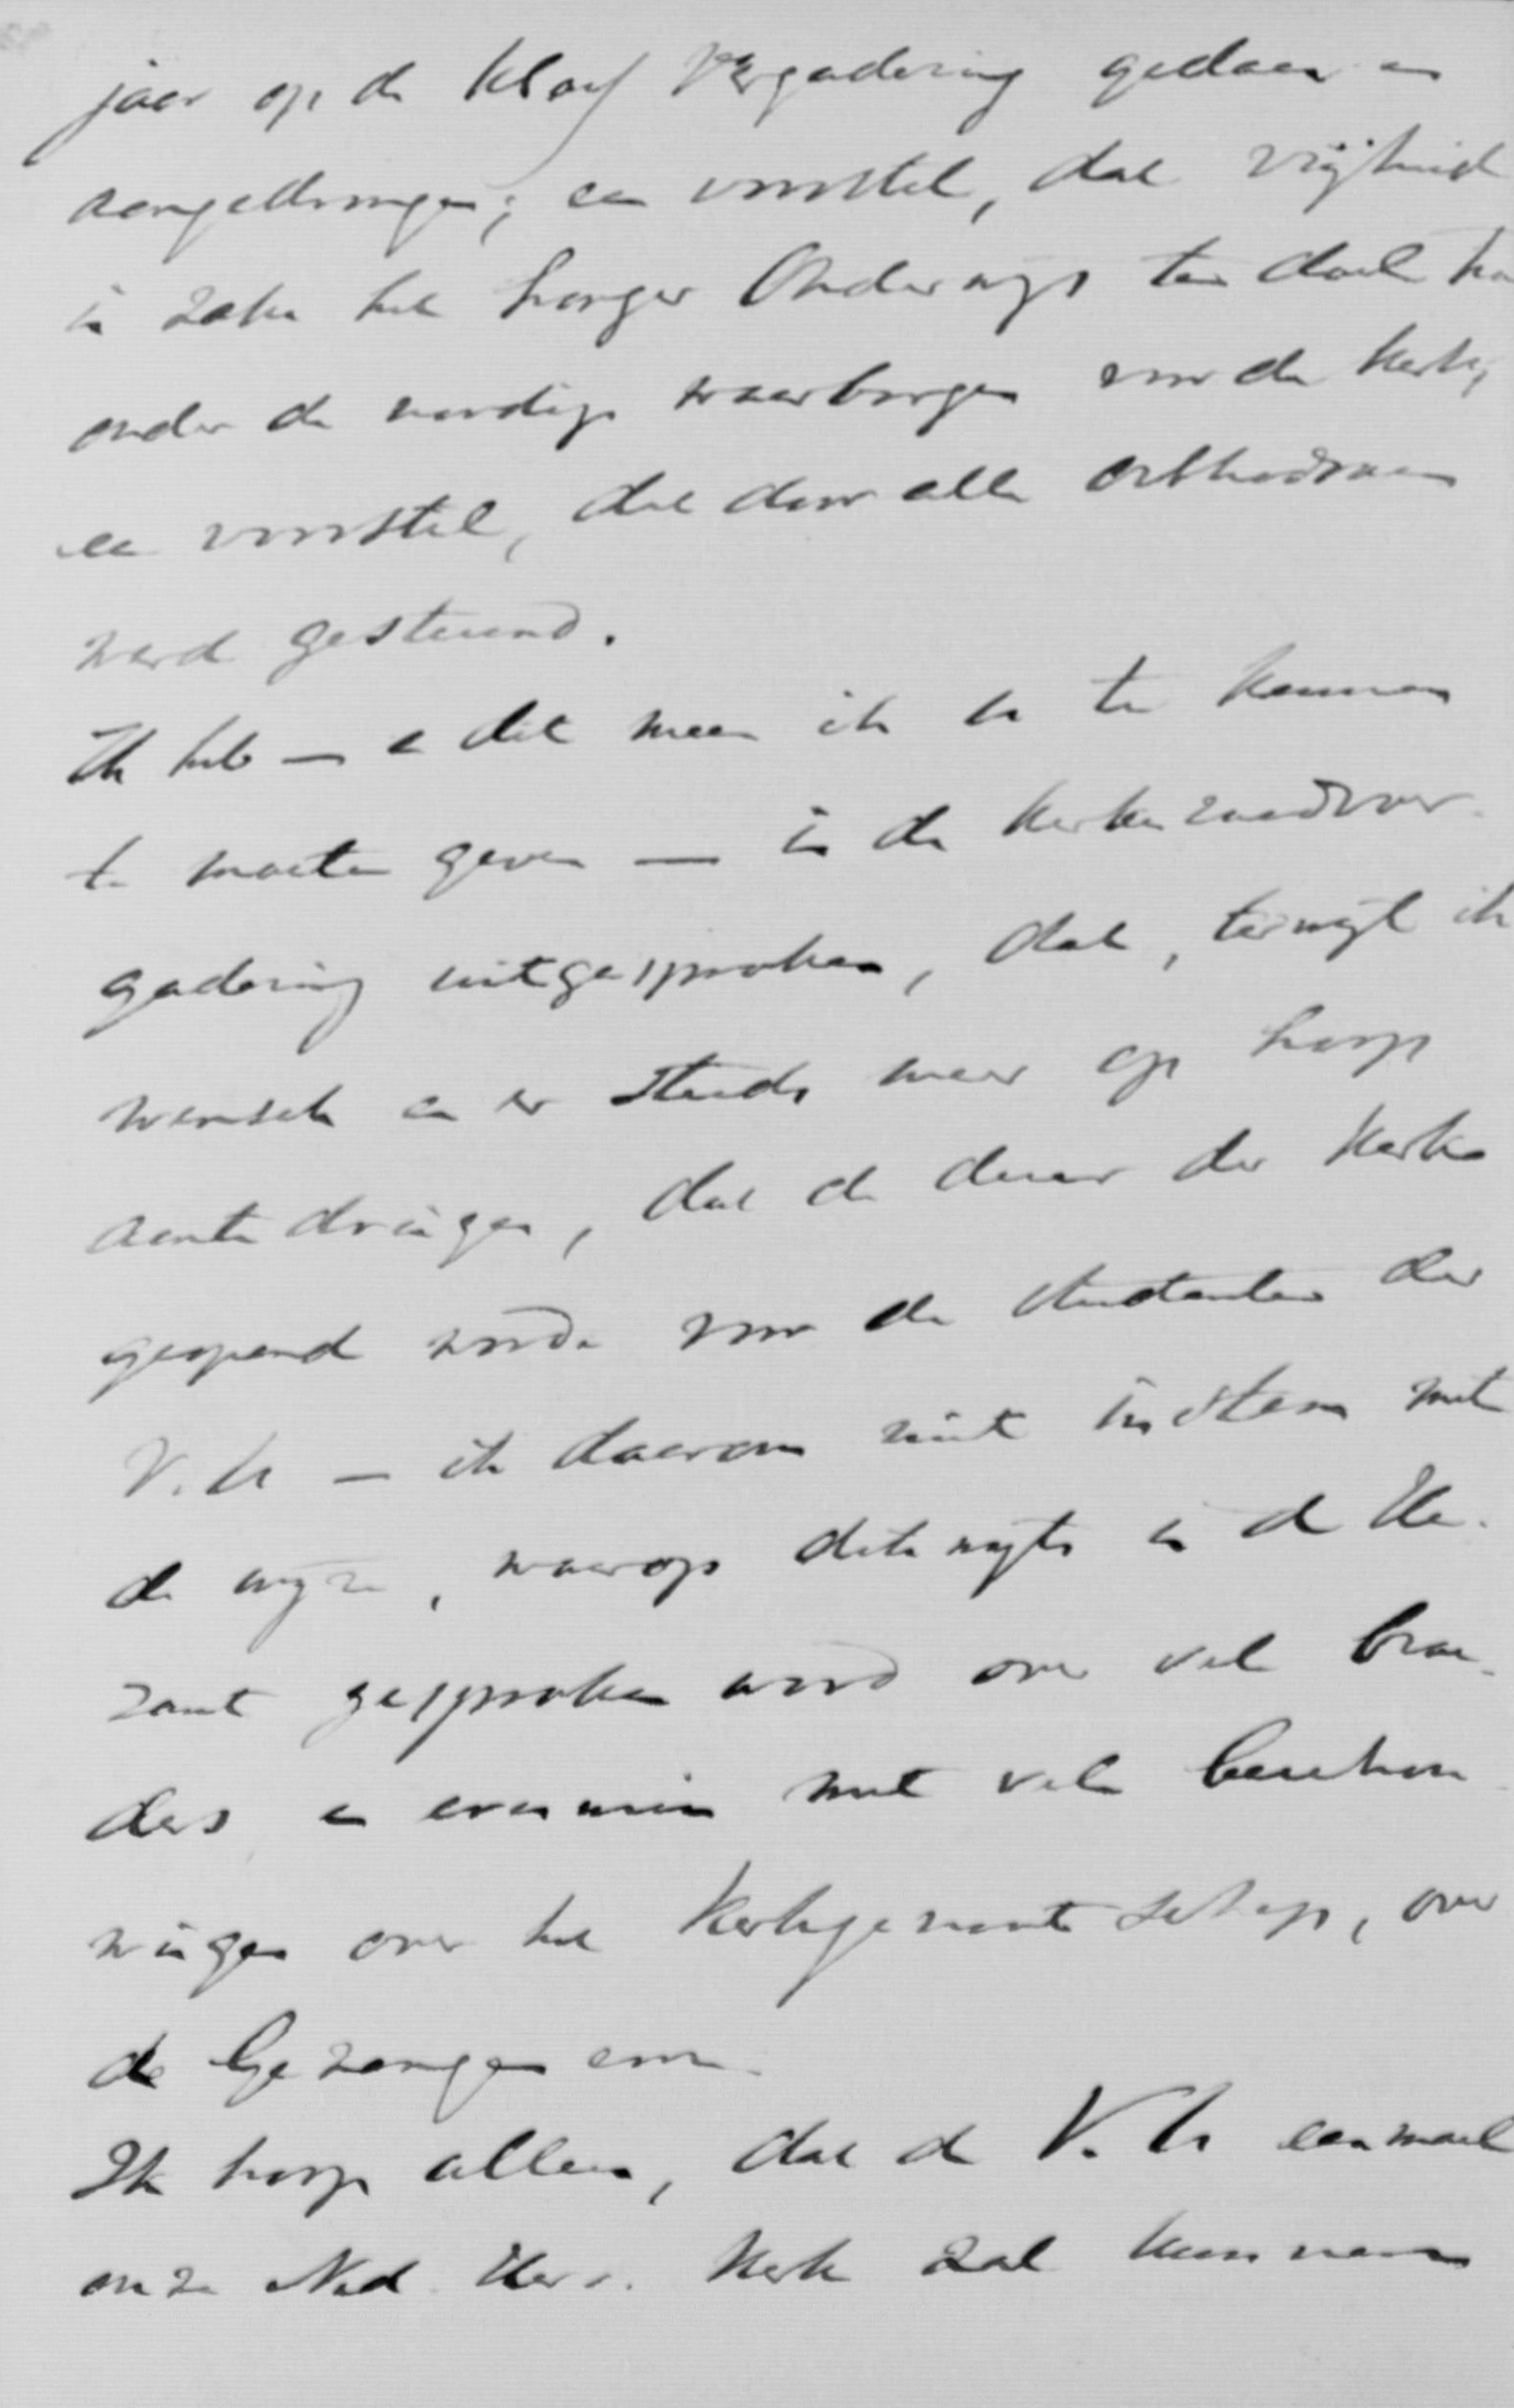 jaar op de Klass Vergadering gedaan en
aangedrongen; een voorstel, dat vrijheid
in zake het hooger Onderwijs ten doel had
onder de noodige waarborgen voor de Kerk,
een voorstel, dat door alle orthodoxen
werd gesteund.
Ik heb — en dit meen ik U te kennen
te moeten geven — in de kerkeraadsver-
gadering uitgesproken, dat, terwijl ik
wensch en er steeds meer op hoop
aan te dringen, dat de deur der Kerk
geopend worde voor de studenten der
V.U — ik daarom niet instem met
de wijze, waarop dikwijls in de He-
raut gesproken word over vele broe-
ders en evenmin met vele beschou-
wingen over het Kerkgenootschap, over
de Gezangen enz.
Ik hoop alleen, dat de V.U eenmaal
onze Ned. Herv. Kerk zal kunnen